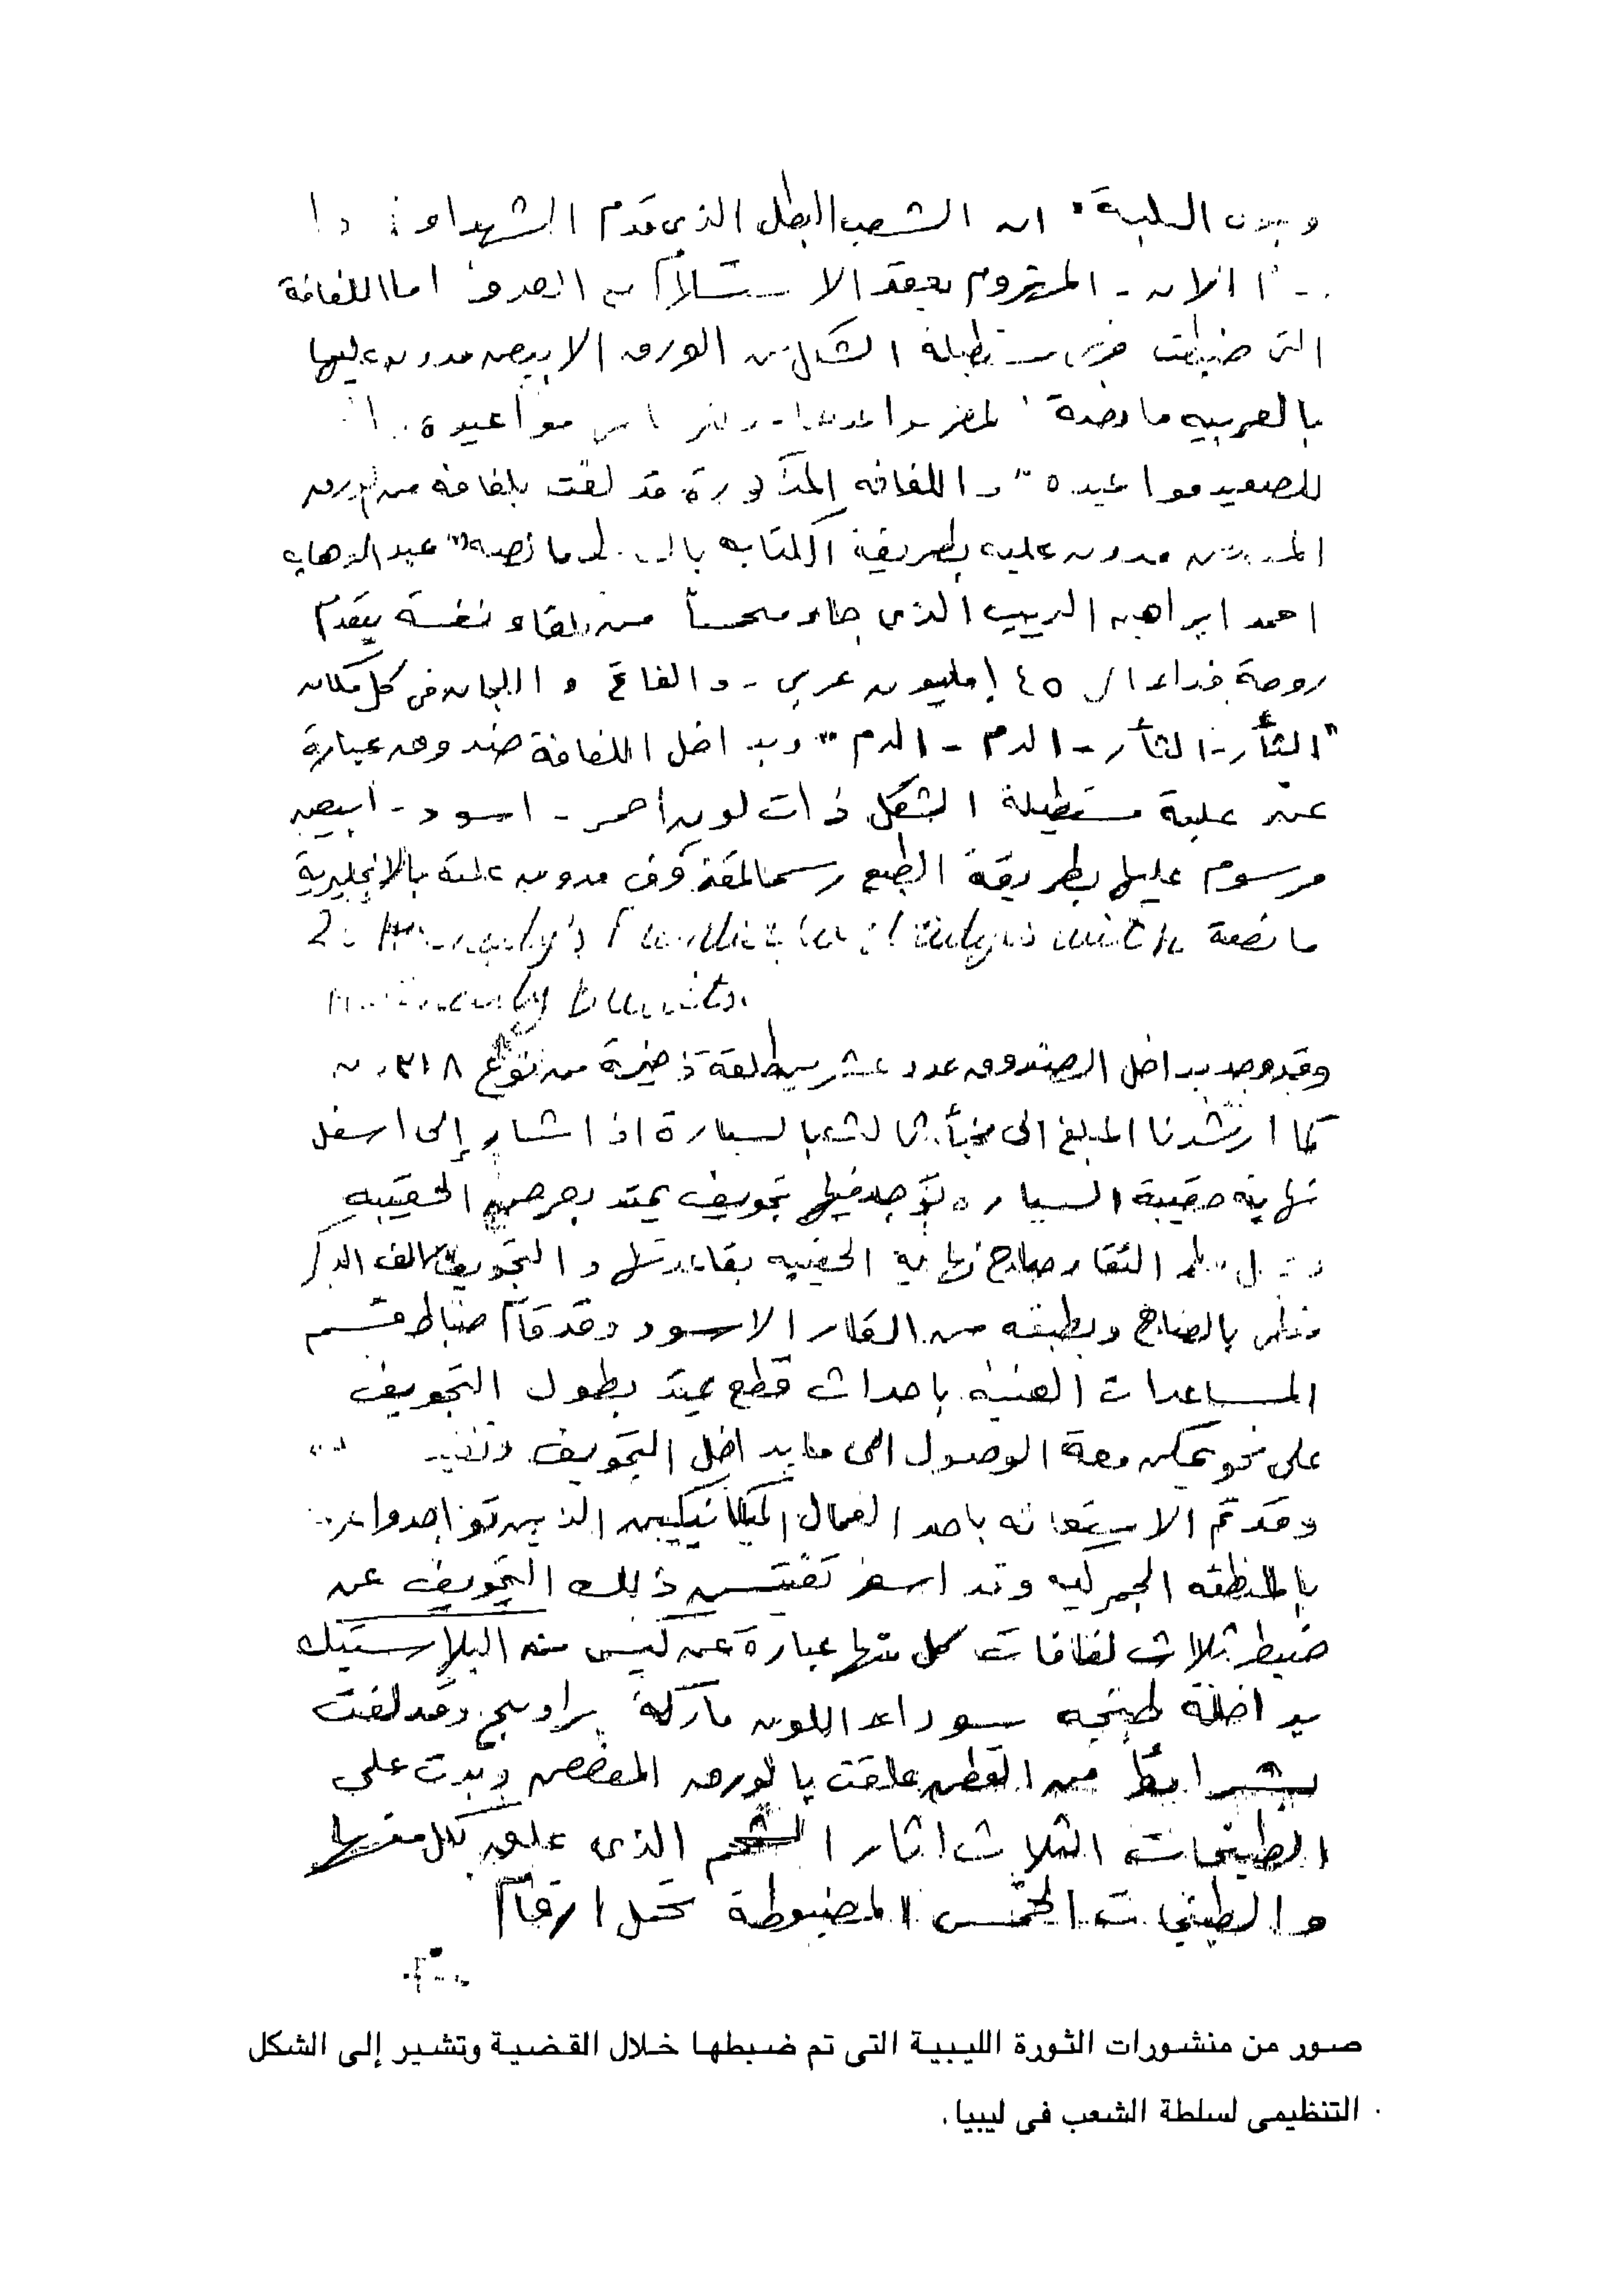 وبدن العلبة " ان الشعب البطل الذى قدم الشهداء
الان - المهزوم بعقد الاستسلام مع العدو " اما اللفافة
التى ضبطت فهى مستطيلة الشكل من الورق الابيض مدون عليها
بالعربيه ما نصة مواعيده
للصعيد مواعيده " و اللفافه المذكورة قد لفت بلفافة من الورق
مدون عليه بطريقة الكتابه ما نصه " عبد الوهاب
احمد ابراهيم الذى جاء متحمساً من تلقاء نفسة يقدم
روحة فداء ال ١٤٥ مليون عربى - و الفاتح و اللجان فى كل مكان
" الثأر - الثأر - الدم - الدم " وبداخل اللفافة صندوق عبارة
عن علبة مستطيلة الشكل ذات لون أحمر - اسود - أبيض
مرسوم عليها بطريقة الطبع رسما لمقذوف مدون علية بالانجليزية
ما نصة
وقد وجد بداخل الصندوق عدد عشرين طلقة ذخيرة من نوع
كما ارشدنا المبلغ الى مخبأ ثالث بالسيارة اذ اشار إلى اسفل
نهاية حقيبة السياره يوجد فيها تجويف يمتد بعرض الحقيبه
التقاء صاج نهاية الحقيبه بقاعدتها و التجويف سالف الذكر
مغطى بالصاج وبطبقه من القار الاسود وقد قام ضباط قسم
المساعدات الفنية باحداث قطع يمتد بطول التجويف
على نحو يمكن معة الوصول الى ما بداخل التجويف
وقد تم الاستعانه باحد العمال الميكانيكيين الذين تواجدوا
بالمنطقه الجمركيه وقد اسفر تفتيش ذلك التجويف عن
ضبط ثلاث لفافات كل منها عبارة عن كيس من البلاستيك
بداخلة طبنجه سوداء اللون ماركة براوننج وقد لفت
بشرائط من القطن علقت بالورق المفضض وبدت على
الطبنجات الثلاث اثار الشحم الذى علق بكل منها
و الطبنجات الخمس المضبوطة تحمل ارقام
صور من منشورات الثورة الليبية التى تم ضبطها خلال القضية وتشير إلى الشكل
التنظيمى لسلطة الشعب فى ليبيا.